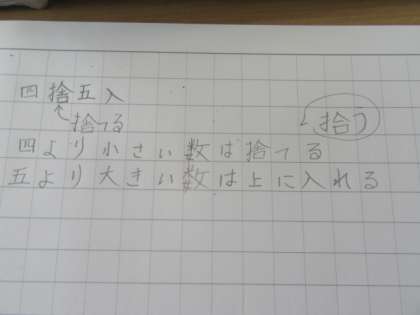 四捨五入
捨てる
拾う
四より小さい数は捨てる
五より大きい数は上に入れる